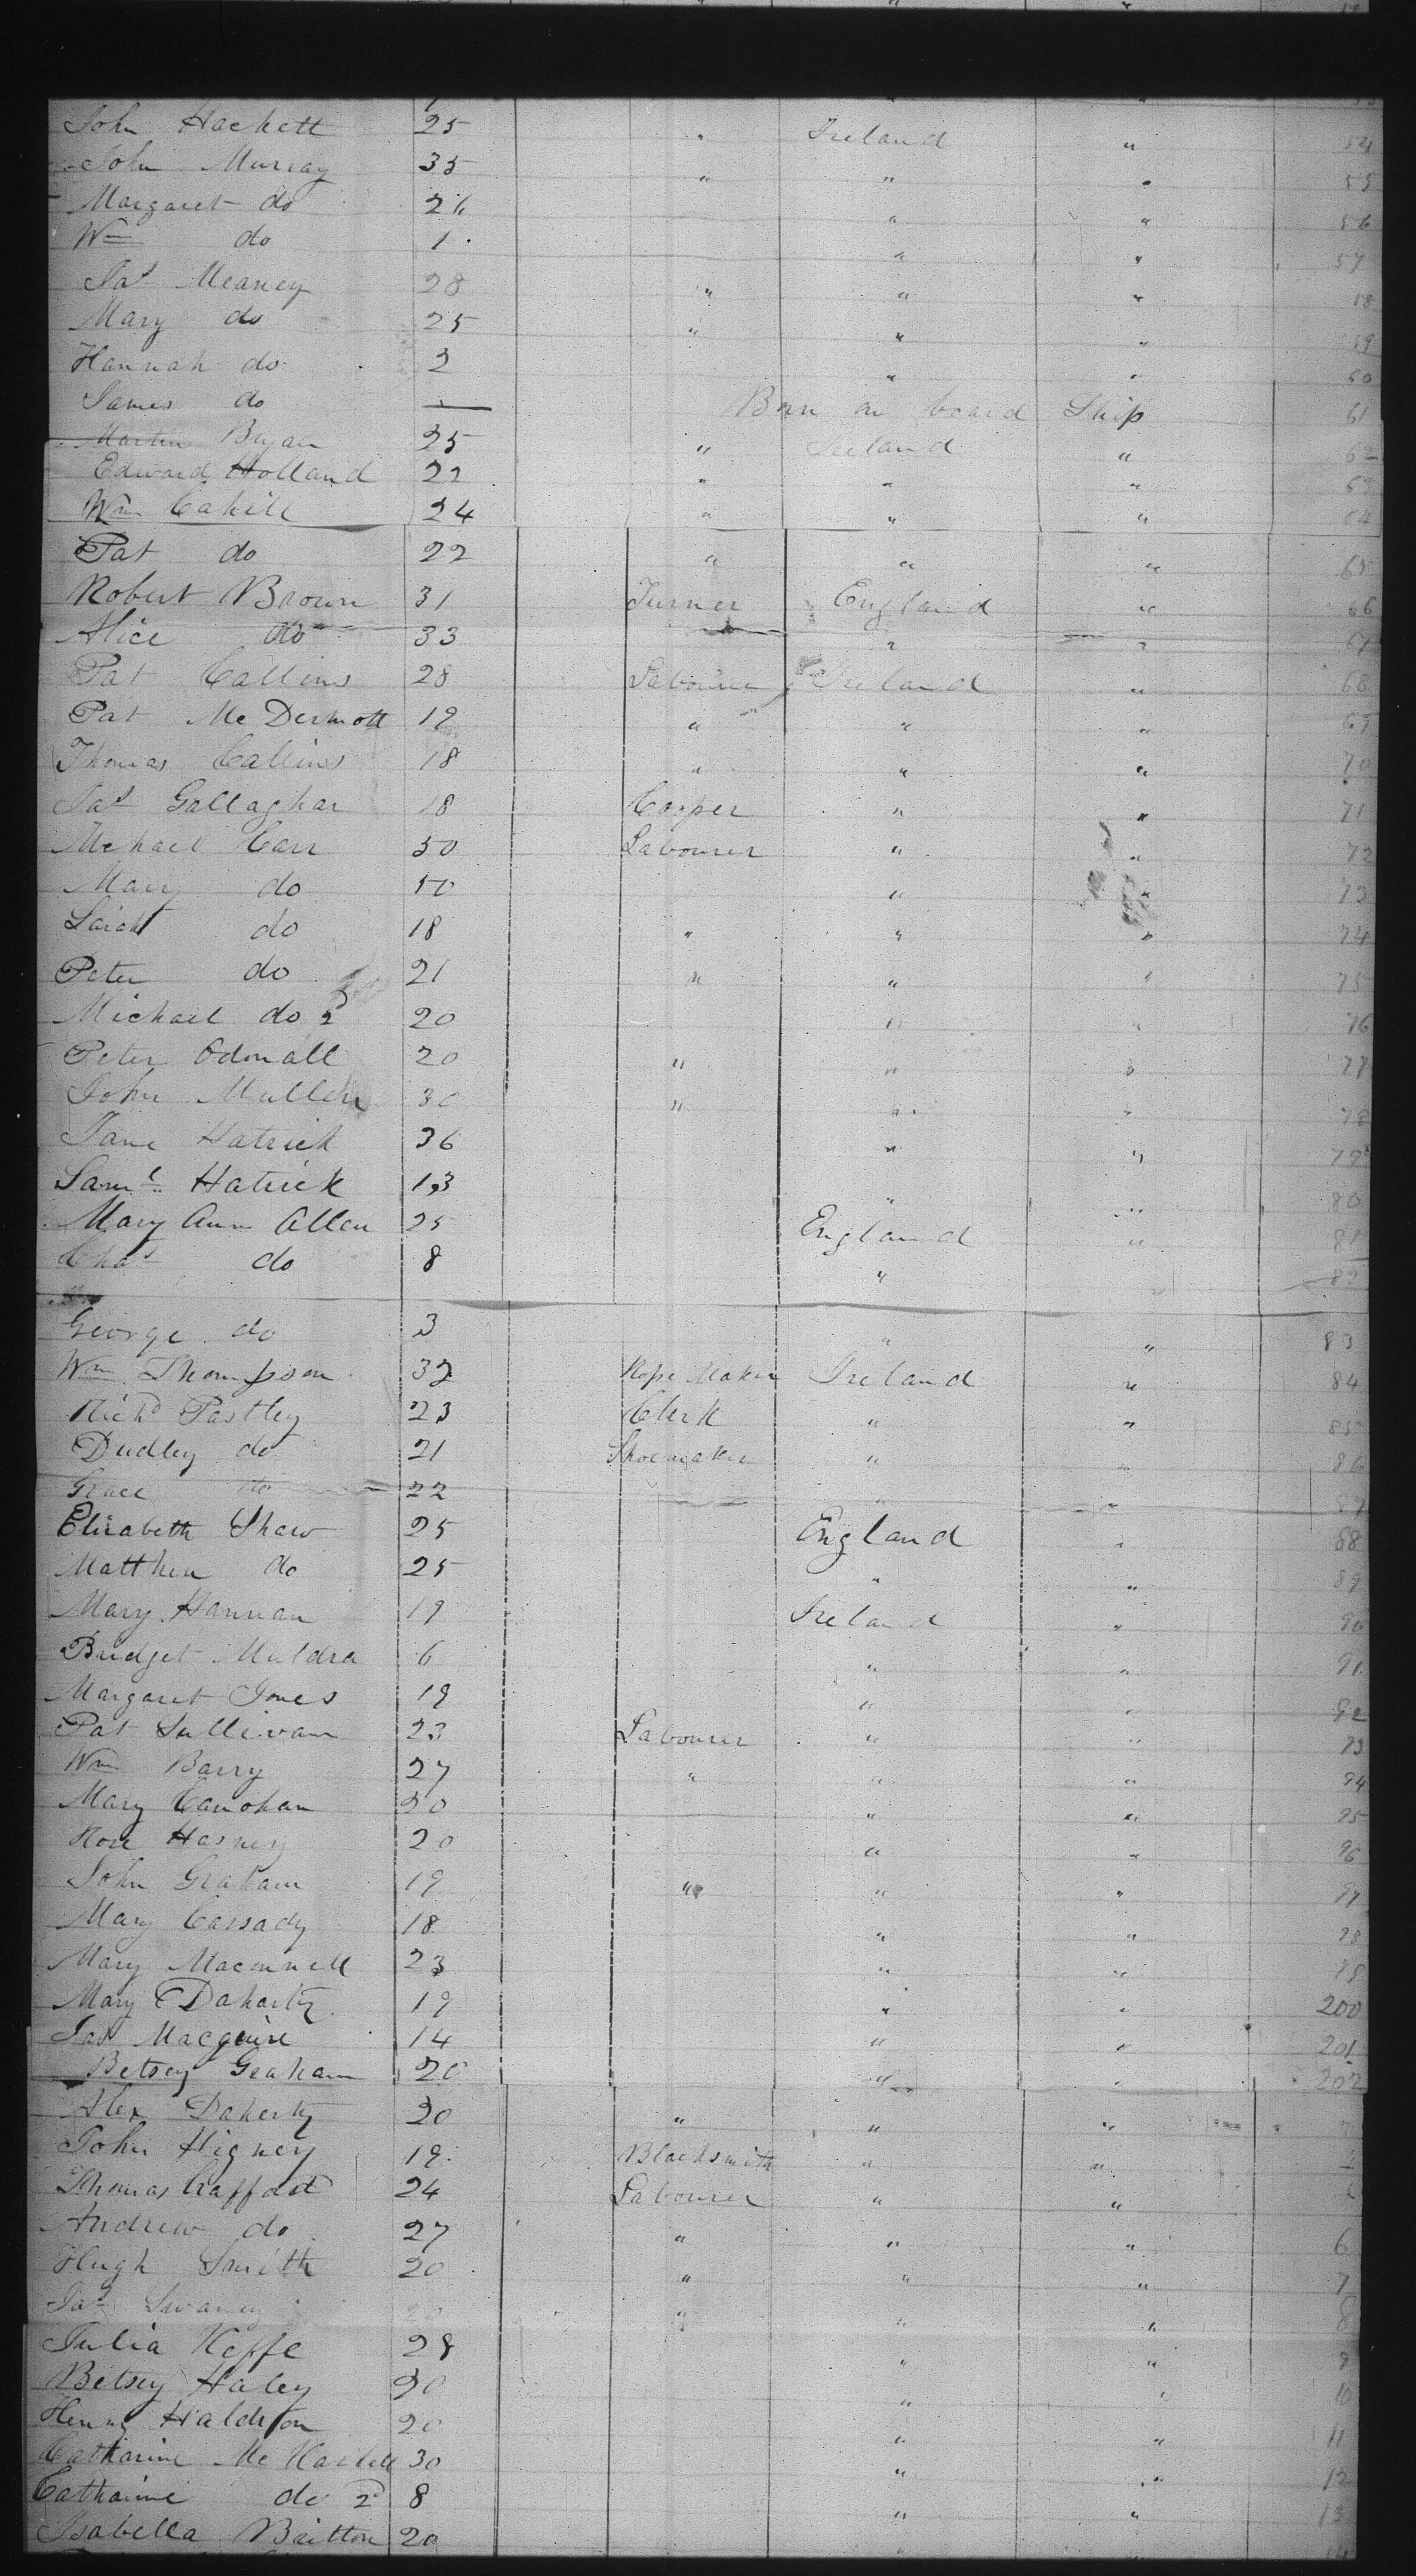 John Hackett 25 " Ireland " 54
John Murray 35 " " " 55
Margaret do 26 " " 56
Wm do 1 " " 57
Jas Meaney 28 " " " 58
Mary do 25 " " " 59
Hannah do 2 " " 60
James do — Born on board Ship 61
Martin Bryan 25 " Ireland " 62
Edward Holland 22 " " " 63
Wm Cahill 24 " " " 64
Pat do 22 " " " 65
Robert Brown 31 Turner England " 66
Alice do 33 " " 67
Pat Collins 28 Labourer Ireland " 68
Pat McDermott 19 " " " 69
Thomas Collins 18 " " " 70
Jas Gallaghar 18 Cooper " " 71
Michael Carr 50 Labourer " " 72
Mary do 50 " " 73
Sarah do 18 " " " 74
Peter do 21 " " " 75
Michael do 2d 20 " " 76
Peter Odonall 20 " " " 77
John Mullen 30 " " " 78
Jane Hatrick 36 " " 79
Saml Hatrick 13 " " 80
Mary Ann Allen 25 England " 81
Chas do 8 " " 82
George do 3 " " 83
Wm Thompson 32 Rope Maker Ireland " 84
Richd Pastley 23 Clerk " " 85
Dudley do 21 Shoemaker " " 86
Grace do 22 " " 87
Elizabeth Shaw 25 England " 88
Matthew do 25 " " 89
Mary Hannan 19 Ireland " 90
Bridget Muldra 6 " " 91
Margaret Jones 19 " " 92
Pat Sullivan 23 Labourer " " 93
Wm Barry 27 " " " 94
Mary Canohan 20 " " 95
Rose Hasney 20 " " 96
John Graham 19 " " " 97
Mary Cassady 18 " " 98
Mary Maconnell 23 " " 99
Mary Daharty 19 " " 200
Jas Macguire 14 " " 201
Betsey Graham 20 " " 202
Alex Doherty 20 " " "
John Higney 19 Blacksmith " "
Thomas Craffort 24 Labourer " "
Andrew do 27 " " " 6
Hugh Smith 20 " " " 7
Jas Swaney 20 " " " 8
Julia Keffe 28 " " 9
Betsey Haley 30 " " 10
Henry 20 " " 11
Catharine Mc 30 " " 12
Catharine do 2d 8 " " 13
Isabella Britton 20 " " 14